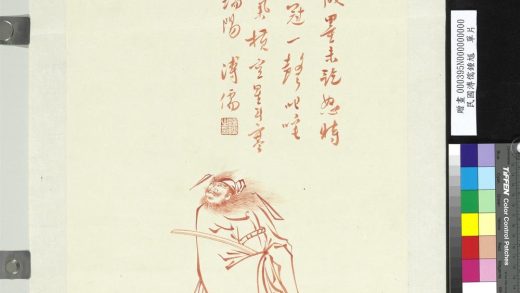 墨未
冠一聲叱咤
氣橫空星斗寒
端陽 溥儒
贈畫 000395N000000000
民國溥儒鍾馗 單片
TIFFEN Color Control Patches